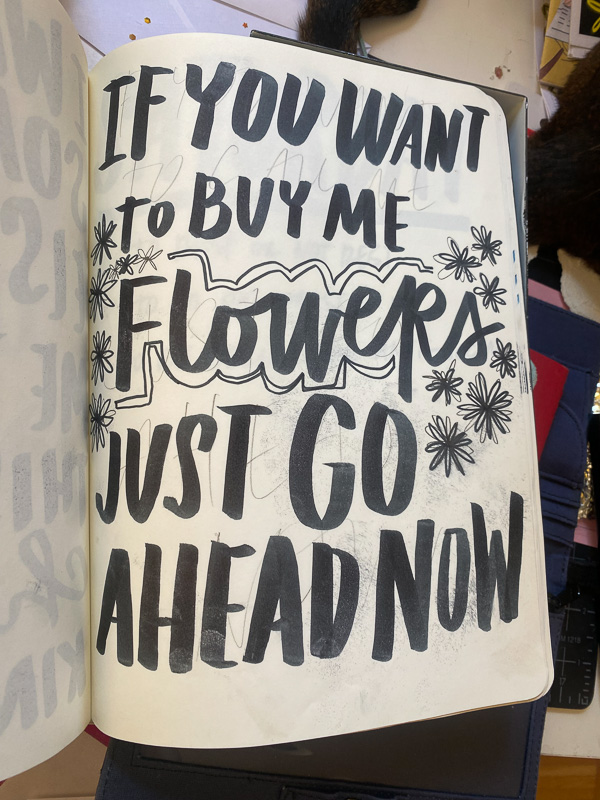 IF YOU WANT
TO BUY ME
Flowers
JUST GO
AHEAD NOW